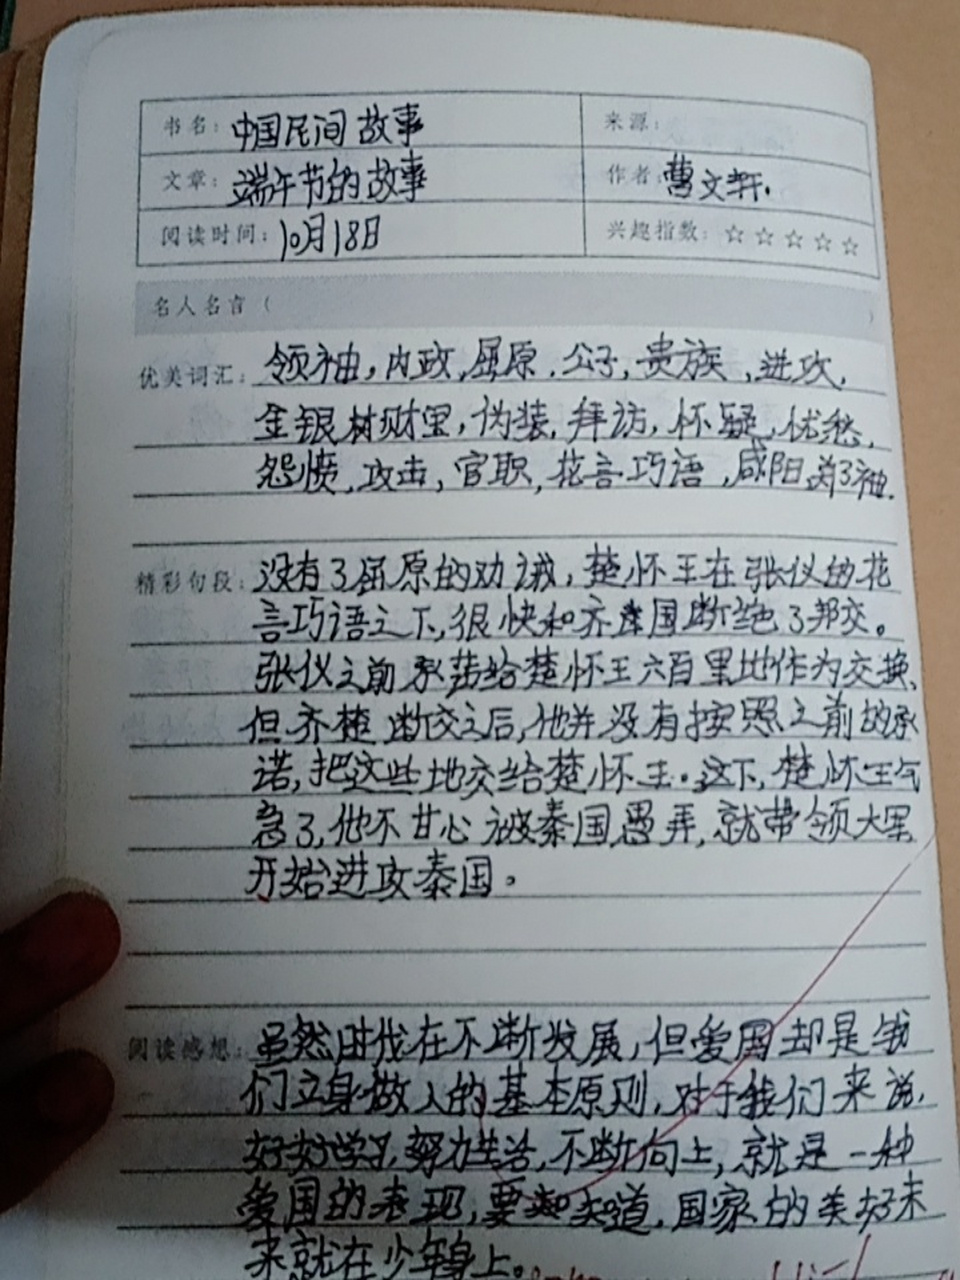 书名：中国民间故事 来源：
文章：端午节的故事 作者：曹文轩.
阅读时间：10月18日 兴趣指数：☆☆☆☆☆
名人名言（ ）
优美词汇：领袖，内政，屈原，公子，贵族，进攻，
金银财宝，伪装，拜访，怀疑，忧愁，
怨愤，攻击，官职，花言巧语，咸阳
精彩句段：没有了屈原的劝诫，楚怀王在张仪的花
言巧语之下，很快和齐国断绝了邦交。
张仪之前承诺给楚怀王六百里地作为交换，
但齐楚断交之后，他并没有按照之前的承
诺，把这些地交给楚怀王。这下，楚怀王气
急了，他不甘心被秦国愚弄，就带领大
开始进攻秦国。
阅读感想：虽然时代在不断发展，但爱国却是我
们立身做人的基本原则，对于我们来说，
好好学习，努力生活，不断向上，就是一种
爱国的表现，要知道，国家的美好未
来就在少年身上。